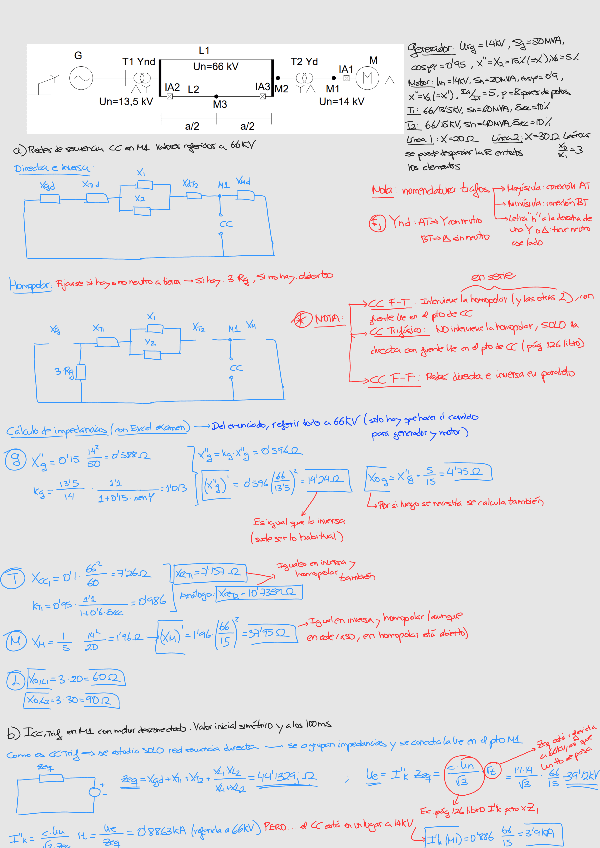 L1
G
T1 Ynd
Un=66 kV
T2 Yd
M
IA2
L2
IA3
M2
IA1
M1
Un=13,5 kV
M3
Un=14 kV
a/2
a/2
Generador: Ung=14kV, Sg=50MVA,
cosφ=0'95, x"=X2=15% (=x'), X0=5%
Motor: Un=14kV, Sn=20MVA, cosφ=0'9,
x"=X2(=X'), Ia/In=5, p=8 pares de polos
T1: 66/13'5kV, Sn=60MVA, εcc=10%
T2: 66/15kV, Sn=40MVA, εcc=10%
Línea 1: X=20Ω Línea 2: X=30Ω
se puede despreciar la R en todos X0/X1=3
los elementos
a) Redes de secuencia CC en M1. Valores referidos a 66kV
Directa e inversa
Xgd
XT1d
X1
X2
XdT2
M1
XMd
CC
Nota nomenclatura trafos
Mayúscula: conexión AT
Minúscula: conexión BT
Letra "n" a la derecha de
una Y o Δ: tiene neutro
ese lado
Ynd · AT → Y con neutro
BT → Δ sin neutro
Homopolar. Fijarse si hay o no neutro a tierra → Si hay: 3 Rg, Si no hay, abierto
Xg
XT1
X1
X2
XT2
M1
XM
3 Rg
CC
en serie
NOTA:
CC F-T: Interviene la homopolar (y las otras 2), con
fuente Ue en el pto de CC
CC Trifásico: NO interviene la homopolar, SOLO la
directa con fuente Ue en el pto de CC (pág 126 libro)
CC F-F: Redes directa e inversa en paralelo
Cálculo de impedancias (con Excel examen) → Del enunciado, referir todo a 66KV (solo hay que hacer el cambio
para generador y motor)
g X"g = 0'15 · 14²/50 = 0'588Ω
x"g = kg · x"g = 0'596Ω
kg = 13'5/14 · 1'1/(1+0'15·senφ) = 1'013
(X"g)' = 0'596 (66/13'5)² = 14'24Ω
X0g = X"g · 5/15 = 4'75Ω
Por si luego se necesita se calcula también
Es igual que la inversa
(suele ser lo habitual)
T Xcc1 = 0'1 · 66²/60 = 7'26Ω
KT1 = 0'95 · 1'1/(1+0'6·εcc) = 0'986
XccT1 = 7'157Ω
Análogo: XccT2 = 10'7352Ω
Iguales en inversa y
homopolar
también
M XM = 1/5 · 14²/20 = 1'96Ω → (XM)' = 1'96 (66/15)² = 37'95Ω
Igual en inversa y homopolar (aunque
en este caso, en homopolar está abierto)
L X0,L1 = 3·20 = 60Ω
X0,L2 = 3·30 = 90Ω
b) Icc,Trif en M1 con motor desconectado. Valor inicial simétrico y a los 100ms
Como es CC Trif → se estudia SOLO red secuencia directa → se agrupan impedancias y se conecta la Ue en el pto M1
Zeq
Zeq = Xgd + XT1 + XT2 + XL1·XL2/(XL1+XL2) = 44'1329j Ω
Ue = I"k Zeq = c·Un/√3 · rt = 1'1·14/√3 · 66/15 = 39'12kV
Zeq está referida
Es pág 126 libro I"k pero × Z1
I"k = c·Un/√3·Zeq · rt = Ue/Zeq = 0'8863kA (referida a 66kV) PERO... el CC está en un lugar a 14kV
I"k (M1) = 0'886 · 66/15 = 3'9kA